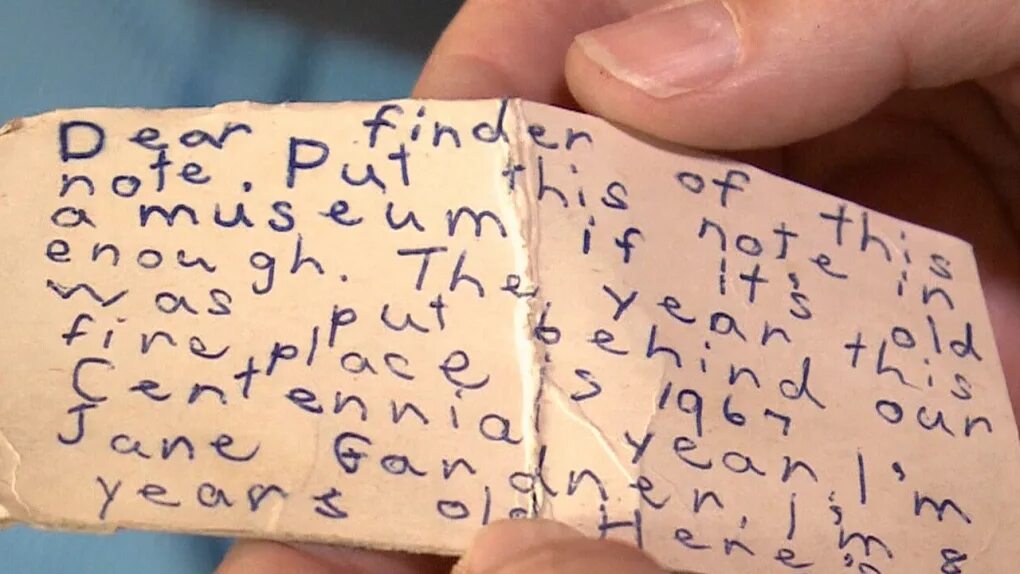 Dear finder of this
note. Put this note in
a museum if it's old
enough. The year this
was put behind our
fireplace is 1967
Centennial year. I'm
Jane Gardner. I'm 8
years old Here's